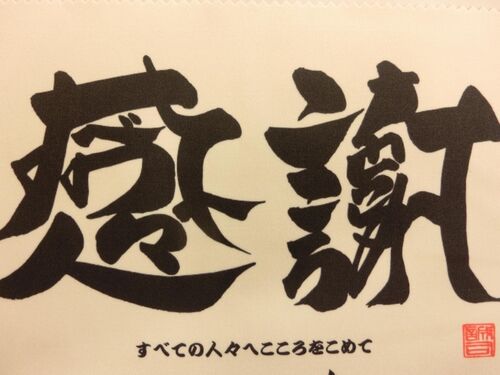 感謝
すべての人々へこころをこめて